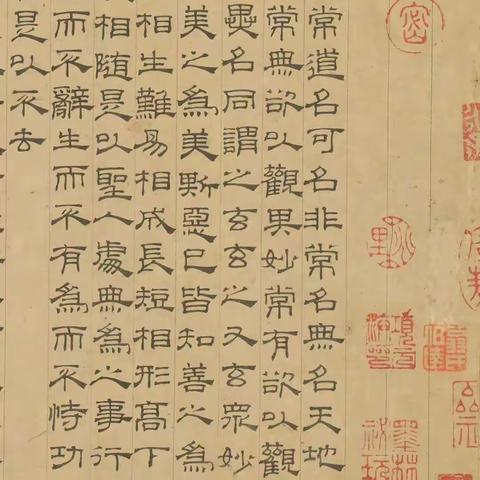 密
常道名可名非常名無名天地
常無欲以觀其妙常有欲以觀
異名同謂之玄玄之又玄衆妙
美之爲美斯惡已皆知善之爲
相生難易相成長短相形高下
相隨是以聖人處無爲之事行
而不辭生而不有爲而不恃功
是以不去